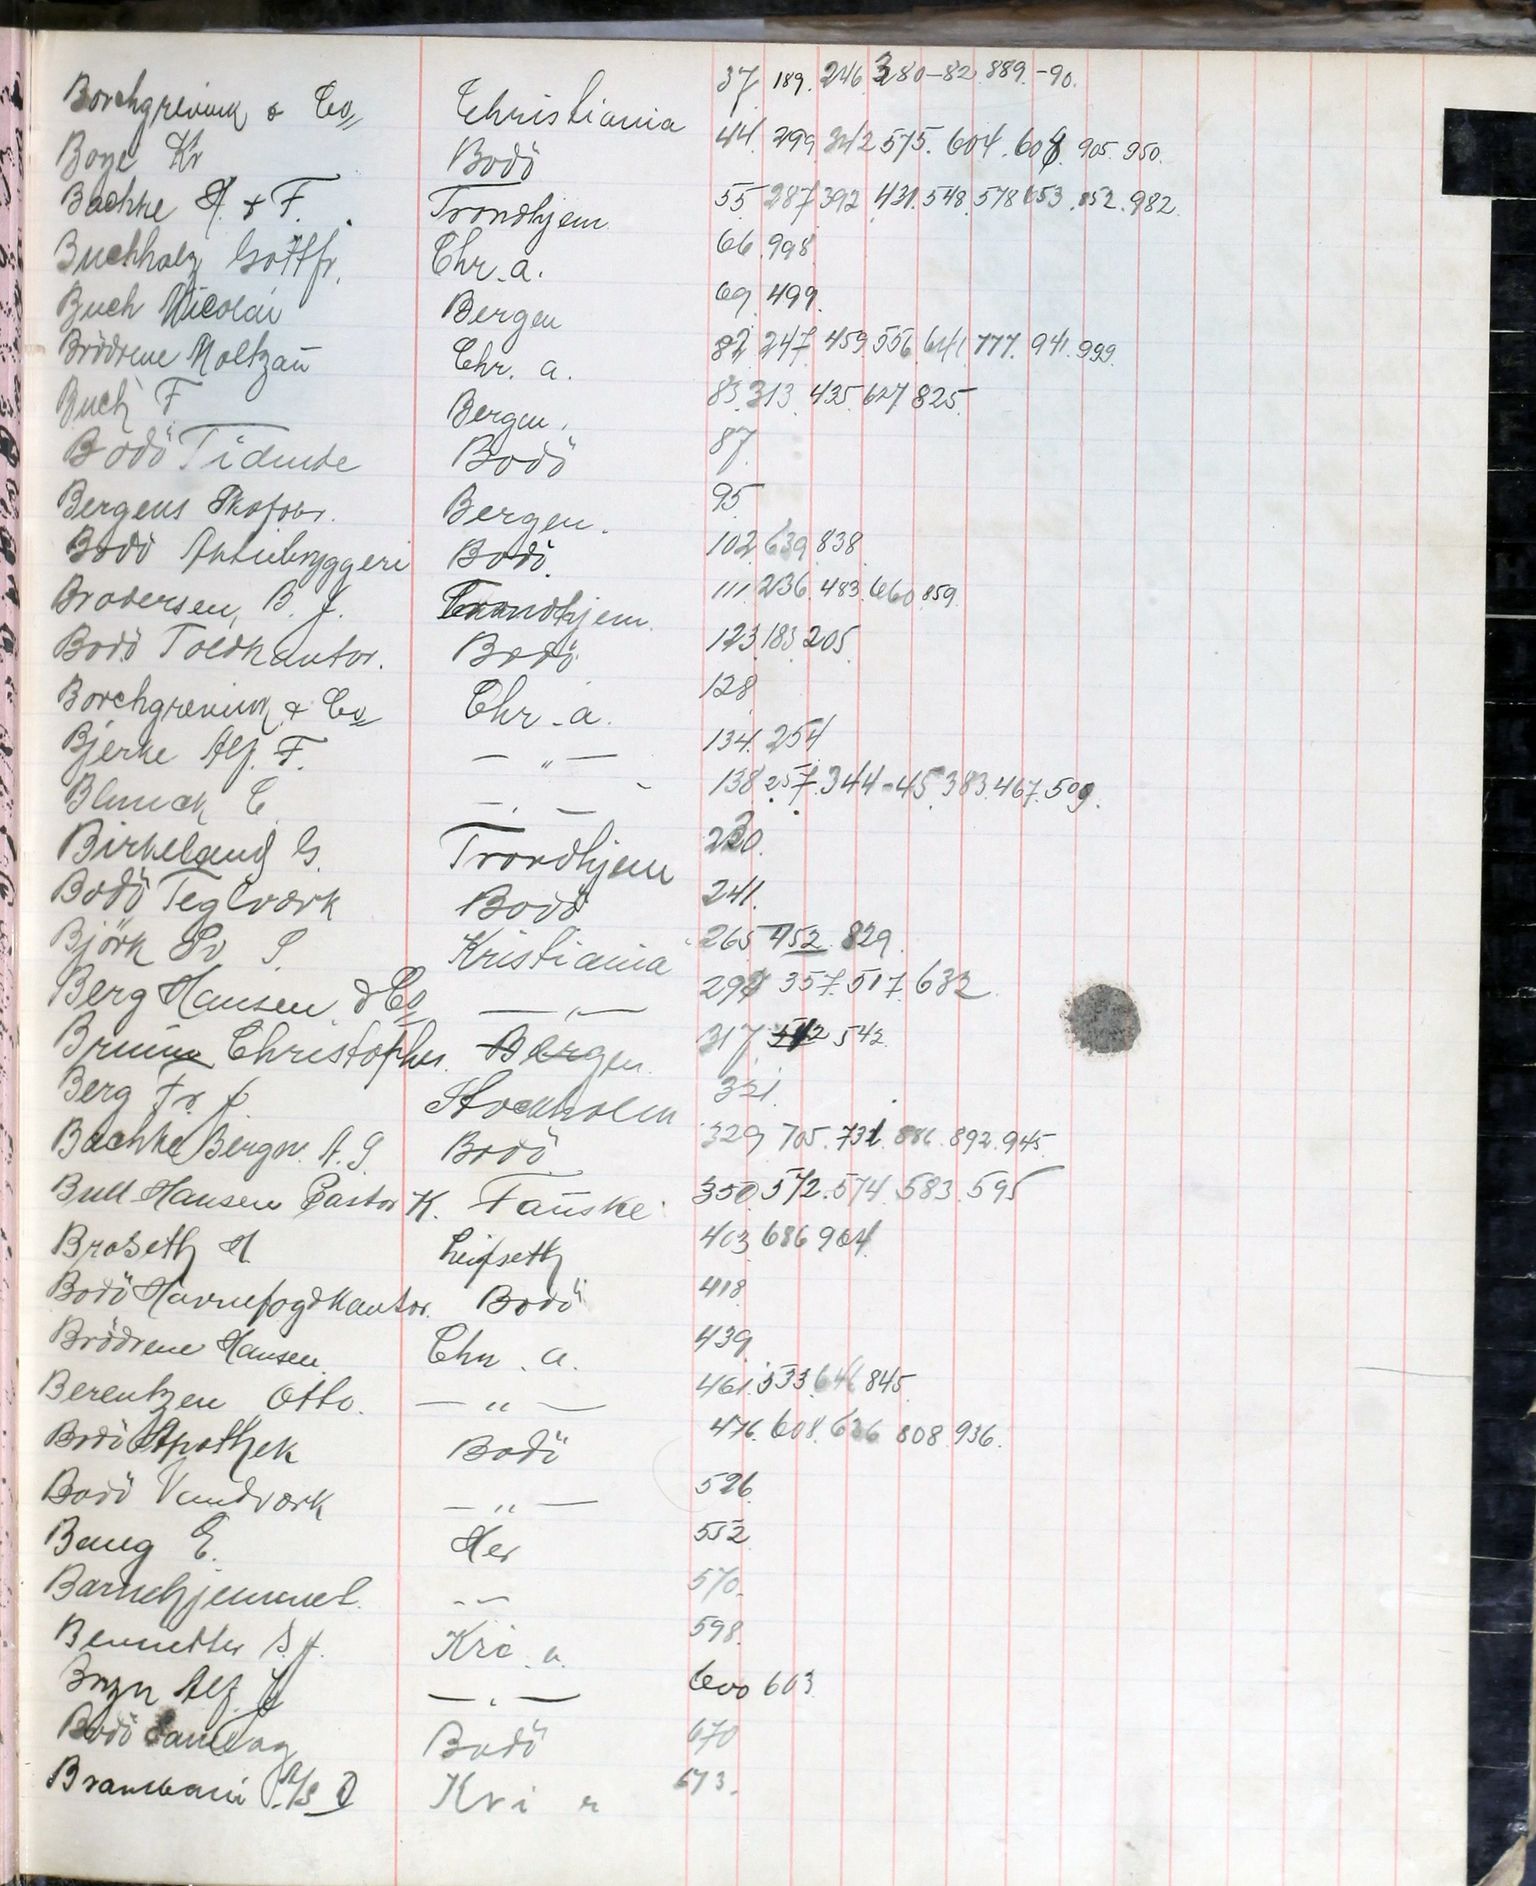 Borchgrevink & Co Christiania 37. 189. 246 380-82. 889.-90.
Boye Kr Bodö 44. 299. 342 575. 604. 608. 905. 950.
Bachke A. & F. Trondhjem 55 287 392 431. 548. 578 653. 852. 982.
Buchholz Gottfr. Chr.a. 66. 998
Buch Nicolai Bergen 69. 499.
Brödrene Moltzaŭ Chr. a. 82 247. 459 556. 641. 777. 941. 999.
Buch F. Bergen. 83. 313. 435. 627 825.
Bodö Tidende Bodö 87.
Bergens Skofabr. Bergen. 95
Bodö Aktiebryggeri Bodö. 102. 639. 838
Brodersen, B. J. Trondhjem. 111. 236. 483. 660. 859.
Bodö Toldkantor. Bodö 123 183. 205.
Borchgrevink & Co Chr.a. 128
Bjerke Alf. F. — " — 134. 254
Blunck C. — " — 138. 257. 344-45. 383. 467. 509.
Birkeland G. Trondhjem 230.
Bodö Teglværk Bodö 241.
Björk Sv S. Kristiania 265 452. 829.
Berg Hansen & Co — " — 294 357. 517. 632.
Bruun Christopher. Bergen. 317. 542 542.
Berg Fr. J. Stockholm 321.
Bachke Bergv. A.S. Bodö 329. 705. 731. 886. 892. 945.
Bull Hansen Pastor K. Faŭske 350. 572. 574. 583. 595
Broseth M. Leifseth 403 686 904.
Bodö Havnefogdkantor. Bodö 418
Brödrene Hansen. Chr. a. 439.
Berentzen Otto. — " — 461. 533. 646 845.
Bodö Apothek Bodö 476. 608. 636 808. 936.
Bodö Vandværk — " — 526.
Baug E. Her 552.
Barnehjemmet. — " — 570.
Bennetter S.J. Kri.a. 598.
Bryn Alf. J. — " — 600 603.
Bodö Bodö 670
A/S Kri a 673.